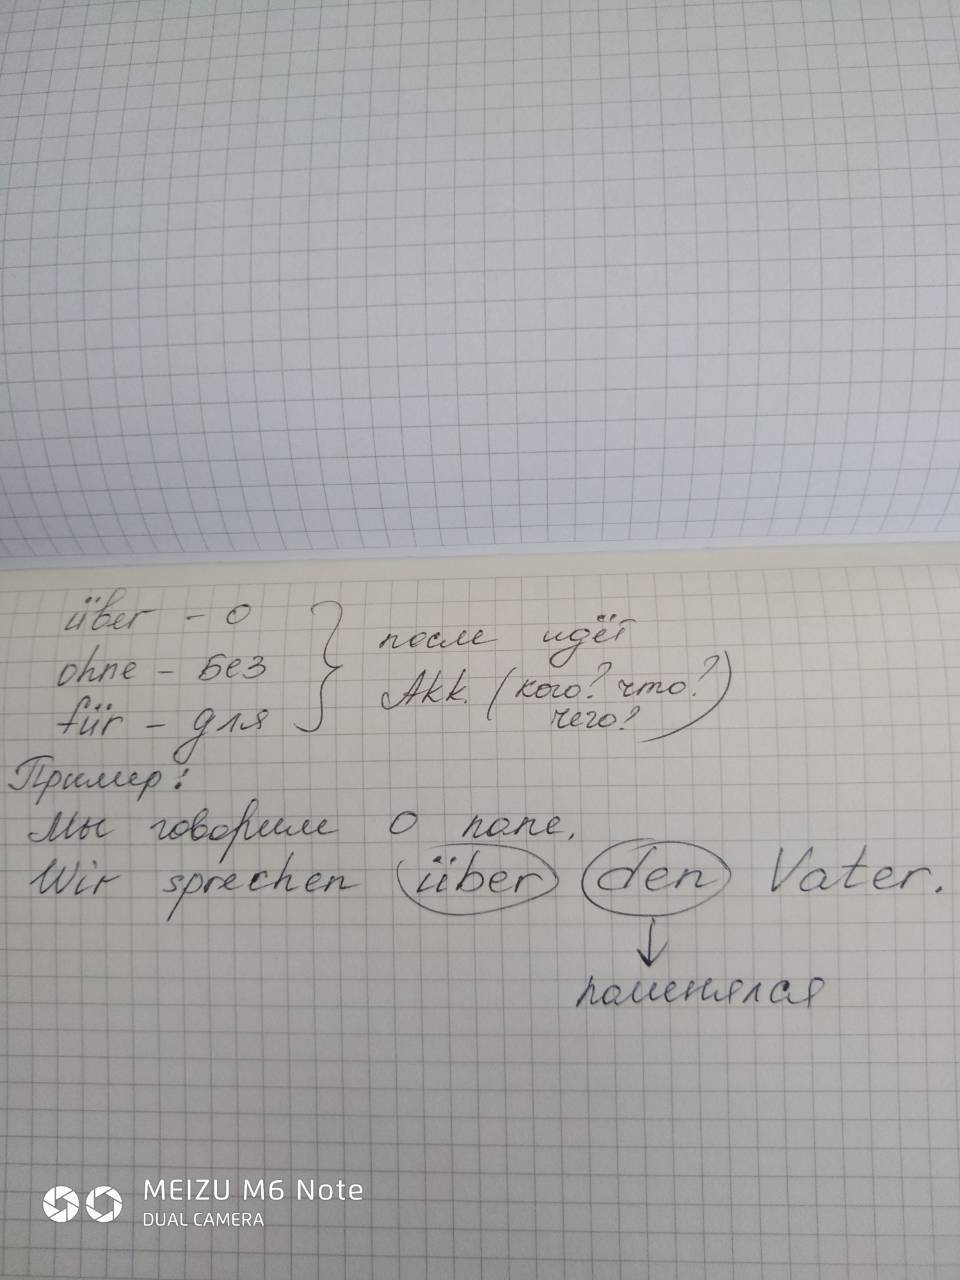 über - о
ohne - Без
für - для
после идёт
Akk. (кого? что?
чего?)
Пример:
Мы говорим о папе.
Wir sprechen über den Vater.
поменялся
MEIZU M6 Note
DUAL CAMERA